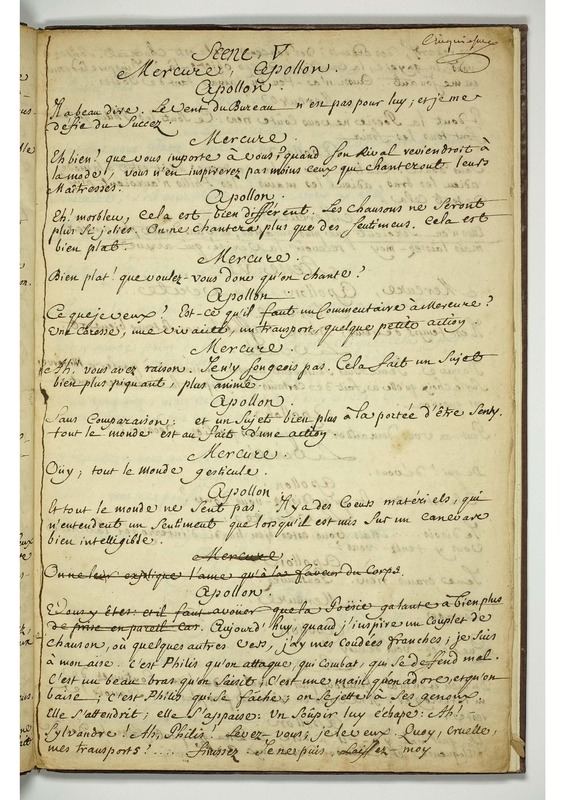 Scene V.
Mercure, Apollon.
Apollon.
Il a beau dire. Le vent du Bureau n'en pas pour luy; et je me
défie du Succez
Mercure.
Eh bien! que vous importe à vous? quand son Rival reviendroit à
la mode, vous n'en inspirerez pas moins ceux qui chanteront leurs
Maîtresses.
Apollon.
Eh! morbleu, cela est bien différent. Les chansons ne seront
plus si jolies. On ne chantera plus que des sentimens. Cela est
bien plat.
Mercure.
Bien plat! que voulez-vous donc qu'on chante?
Apollon
Ce que je veux? Est-ce qu'il faut un Commentaire à Mercure?
une caresse, une vivacité, un transport, quelque petite action.
Mercure.
Ah! vous avez raison. Je n'y songeois pas. Cela fait un Sujet
bien plus piquant, plus animé
Apollon.
Sans Comparaison: et un Sujet bien plus à la portée d'être senty.
tout le monde est au fait d'une action.
Mercure.
Oüy; tout le monde gesticule.
Apollon
Et tout le monde ne sent pas. Il y a des Coeurs matériels, qui
n'entendent un Sentiment que lorsqu'il est mis sur un canevas
bien intelligible.
Mercure.
On ne leur explique l'ame qu'à la faveur du Corps.
Apollon.
Vous y êtes: et il faut avoüer que la Poësie galante a bien plus
de prise en pareil cas. Aujourd'huy, quand j'inspire un Couplet de
chanson, où quelques autres vers, j'ay mes coudées franches; je suis
à mon aise. C'est Philis qu'on attaque, qui Combat, qui se defend mal.
C'est un beau bras qu'on saisit. C'est une main qu'on adore, et qu'on
baise; c'est Philis qui se fâche; on se jette à ses genoux.
Elle s'attendrit; elle s'appaise: un Soupir luy échape: Ah!
Sylvandre! Ah, Philis! Levez-vous; je le veux. Quoy, cruelle,
mes transports?.... finissez. Je ne puis. Laissez-moy